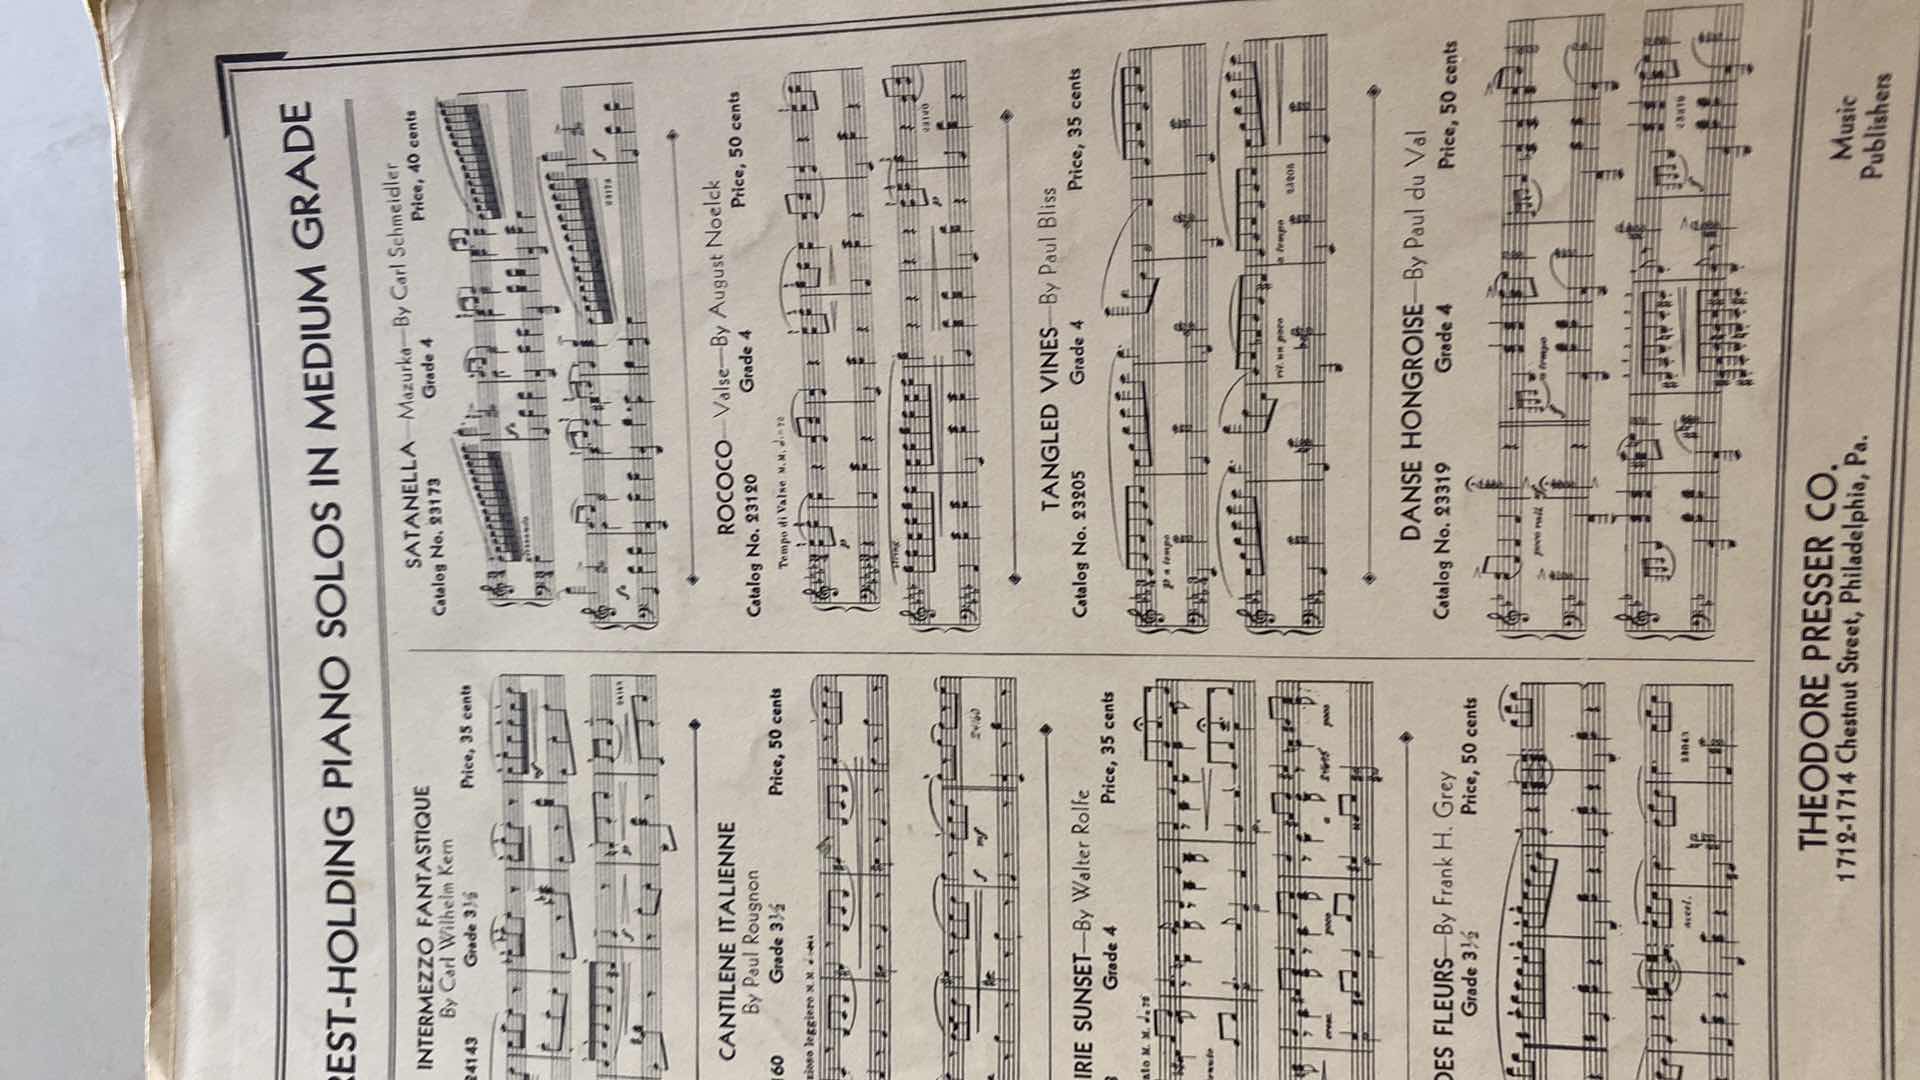 REST-HOLDING PIANO SOLOS IN MEDIUM GRADE
INTERMEZZO FANTASTIQUE
By Carl Wilhelm Kern
24143 Grade 3½ Price, 35 cents
24143
CANTILENE ITALIENNE
By Paul Rougnon
160 Grade 3½ Price, 50 cents
leggiero M.M.
f mf
24160
IRIE SUNSET—By Walter Rolfe
Grade 4 Price, 35 cents
M.M.
cresc. poco a poco
poco
DES FLEURS—By Frank H. Grey
Grade 3½ Price, 50 cents
accel.
SATANELLA—Mazurka—By Carl Schmeidler
Catalog No. 23173 Grade 4 Price, 40 cents
23173
ROCOCO—Valse—By August Noelck
Catalog No. 23120 Grade 4 Price, 50 cents
Tempo di Valse M.M.
p
string.
p
23120
TANGLED VINES—By Paul Bliss
Catalog No. 23205 Grade 4 Price, 35 cents
p a tempo
rit. un poco a tempo
23205
DANSE HONGROISE—By Paul du Val
Catalog No. 23319 Grade 4 Price, 50 cents
poco rall. a tempo
23319
THEODORE PRESSER CO. Music
1712-1714 Chestnut Street, Philadelphia, Pa. Publishers